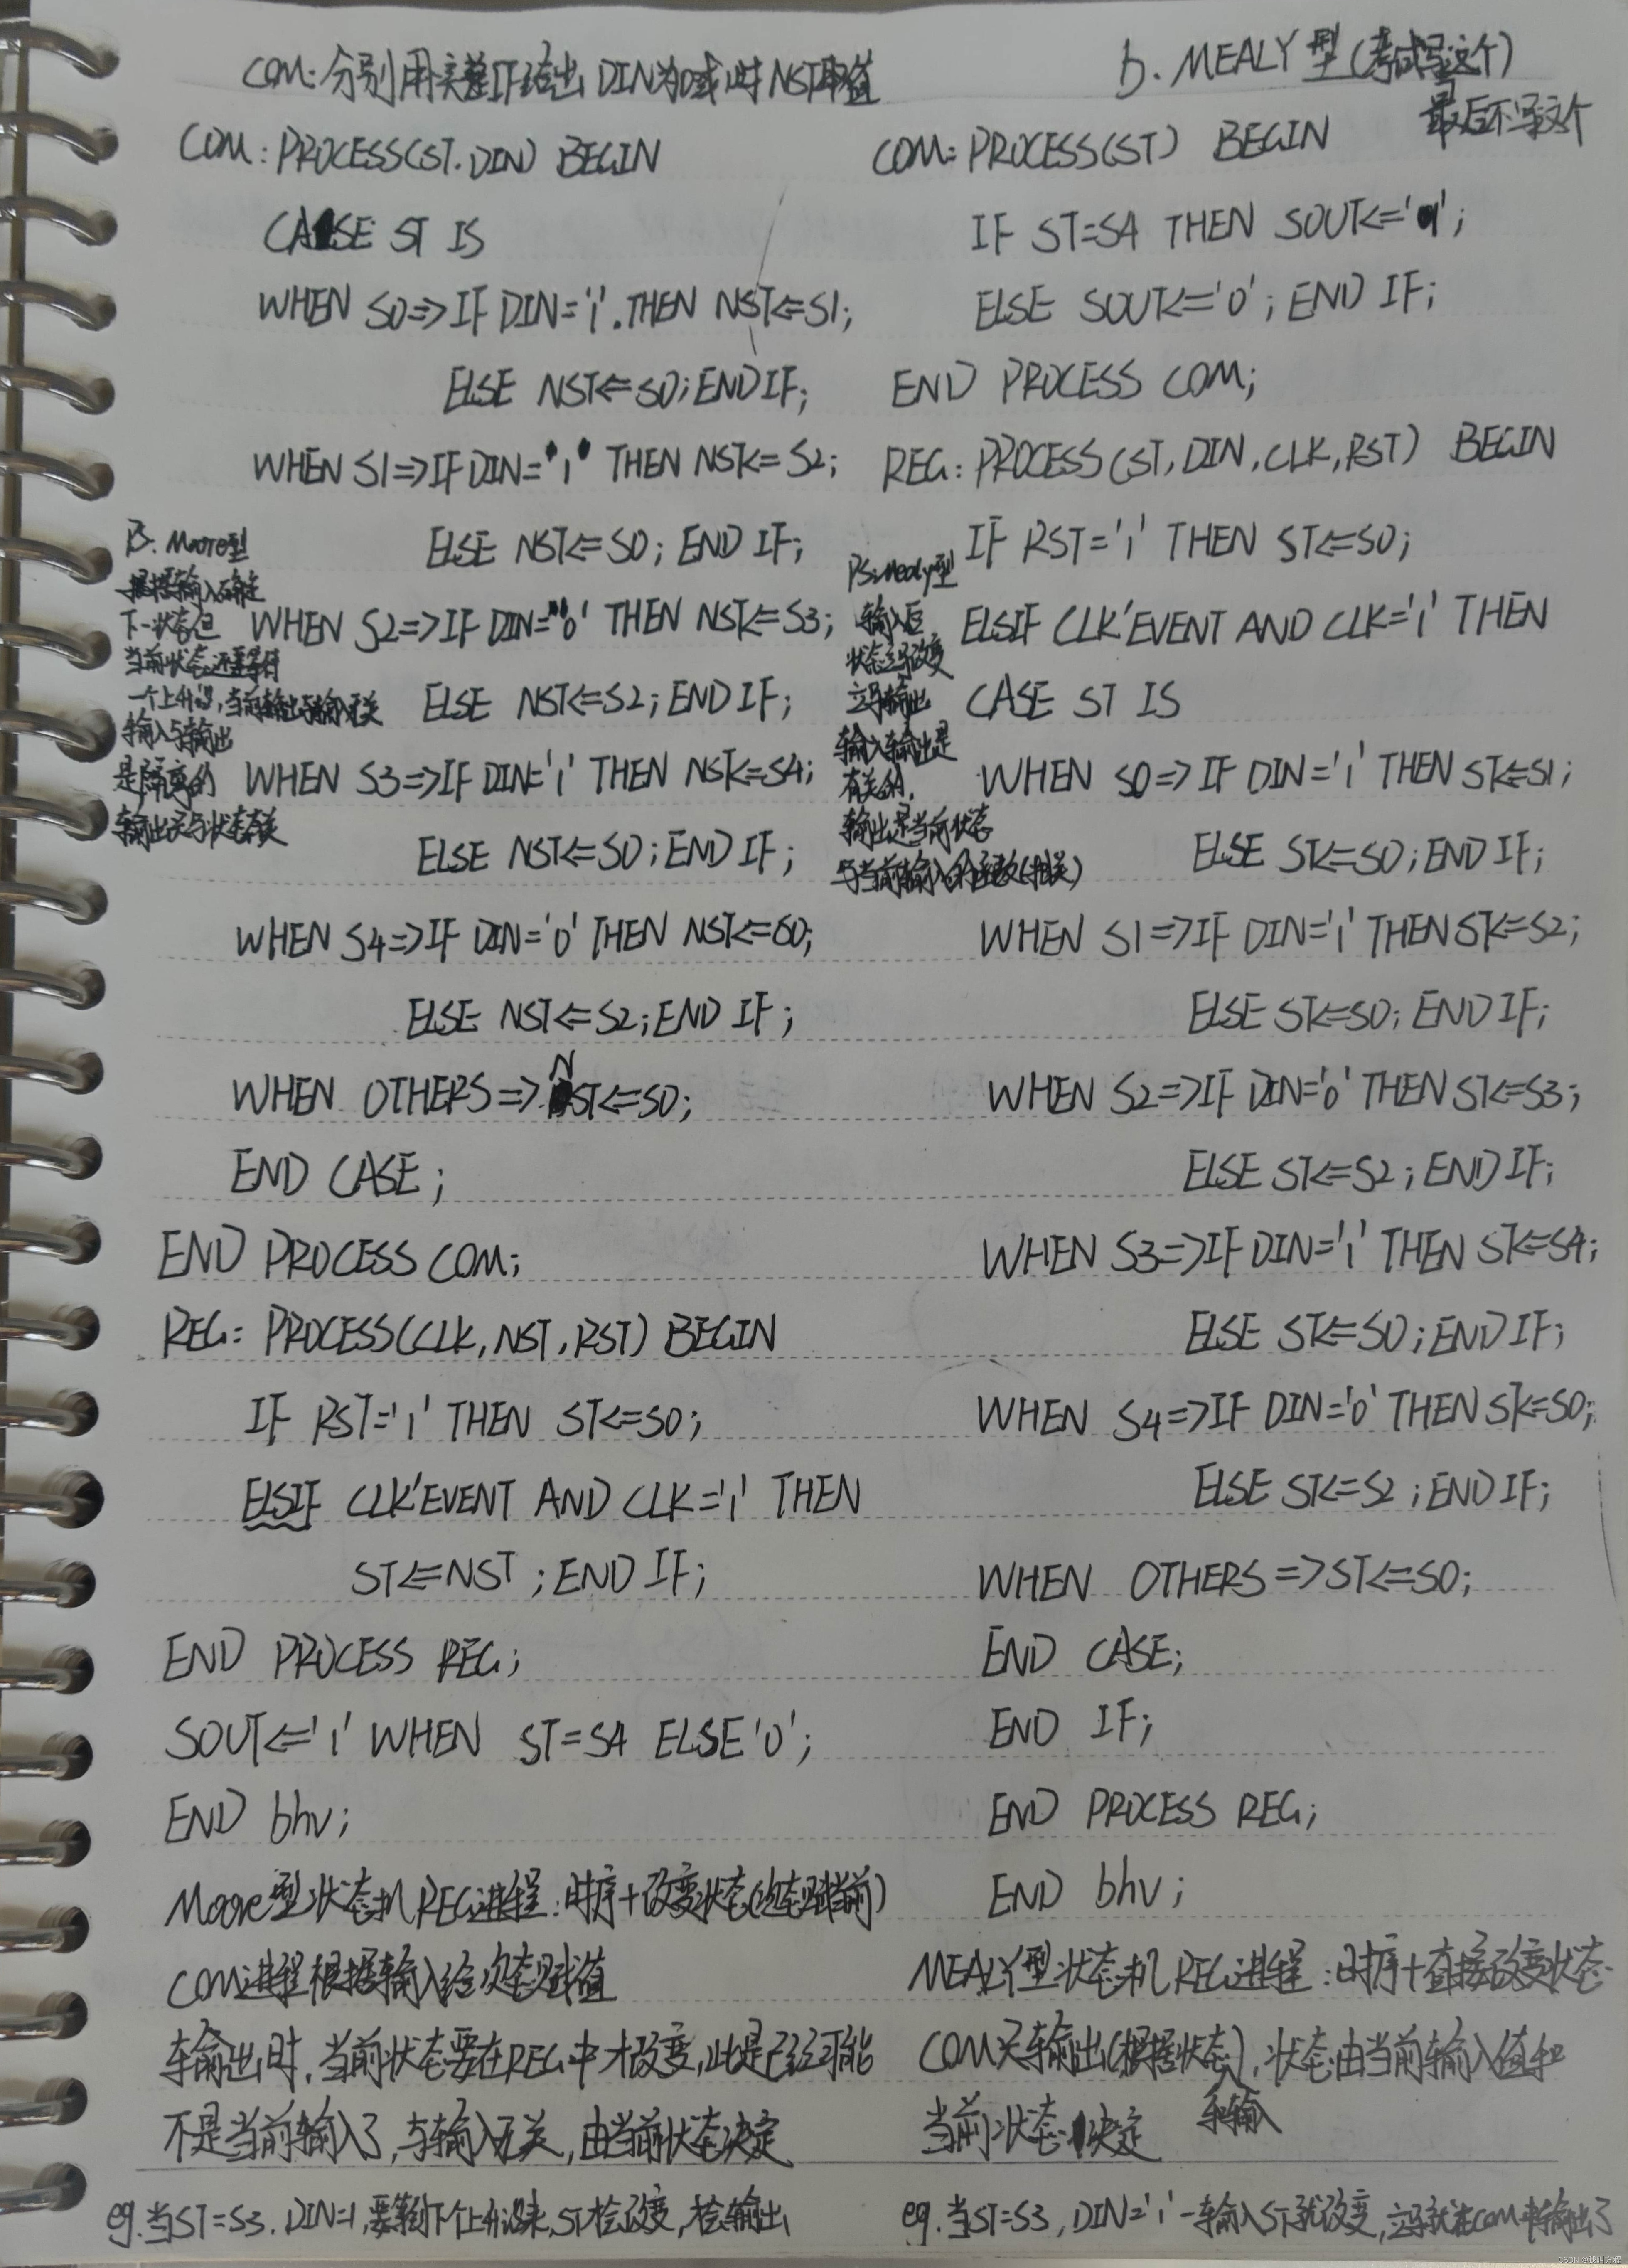 COM: 分别用 IF给出 DIN为0或1时 NST取值
COM: PROCESS(ST, DIN) BEGIN
CASE ST IS
WHEN S0=>IF DIN='1' THEN NST<=S1;
ELSE NST<=S0; END IF;
WHEN S1=>IF DIN='1' THEN NST<=S2;
ELSE NST<=S0; END IF;
WHEN S2=>IF DIN='0' THEN NST<=S3;
ELSE NST<=S2; END IF;
WHEN S3=>IF DIN='1' THEN NST<=S4;
ELSE NST<=S0; END IF;
WHEN S4=>IF DIN='0' THEN NST<=S0;
ELSE NST<=S2; END IF;
WHEN OTHERS=> NST<=S0;
END CASE;
END PROCESS COM;
REG: PROCESS(CLK, NST, RST) BEGIN
IF RST='1' THEN ST<=S0;
ELSIF CLK'EVENT AND CLK='1' THEN
ST<=NST; END IF;
END PROCESS REG;
SOUT<='1' WHEN ST=S4 ELSE '0';
END bhv;
Moore型状态机 REG进程: 时序+改变状态(次态赋当前)
COM进程根据输入给次态赋值
输出时, 当前状态要在REG中才改变, 此是已经可能
不是当前输入了, 与输入无关, 由当前状态决定
eg. 当ST=S3, DIN=1, 要等到下个上升沿来, ST才会改变, 才会输出
PS: Moore型
根据输入确定
下一状态但
当前状态还要等待
一个上升沿, 当前输出与输入无关
输入与输出
是隔离的
输出只与状态有关
b. MEALY型(考试写这个)
最后不写这个
COM: PROCESS(ST) BEGIN
IF ST=S4 THEN SOUT<='1';
ELSE SOUT<='0'; END IF;
END PROCESS COM;
REG: PROCESS(ST, DIN, CLK, RST) BEGIN
IF RST='1' THEN ST<=S0;
ELSIF CLK'EVENT AND CLK='1' THEN
CASE ST IS
WHEN S0=>IF DIN='1' THEN ST<=S1;
ELSE ST<=S0; END IF;
WHEN S1=>IF DIN='1' THEN ST<=S2;
ELSE ST<=S0; END IF;
WHEN S2=>IF DIN='0' THEN ST<=S3;
ELSE ST<=S2; END IF;
WHEN S3=>IF DIN='1' THEN ST<=S4;
ELSE ST<=S0; END IF;
WHEN S4=>IF DIN='0' THEN ST<=S0;
ELSE ST<=S2; END IF;
WHEN OTHERS=>ST<=S0;
END CASE;
END IF;
END PROCESS REG;
END bhv;
MEALY型状态机 REG进程: 时序+直接改变状态
COM只输出(根据状态), 状态由当前输入值和
和输入
当前状态决定
eg. 当ST=S3, DIN='1' 一输入ST就改变, 立马就在COM中输出了
PS: Mealy型
输入后
状态立马改变
立马输出
输入输出是
有关的,
输出是当前状态
与当前输入的函数(相关)
CSDN @我叫方程